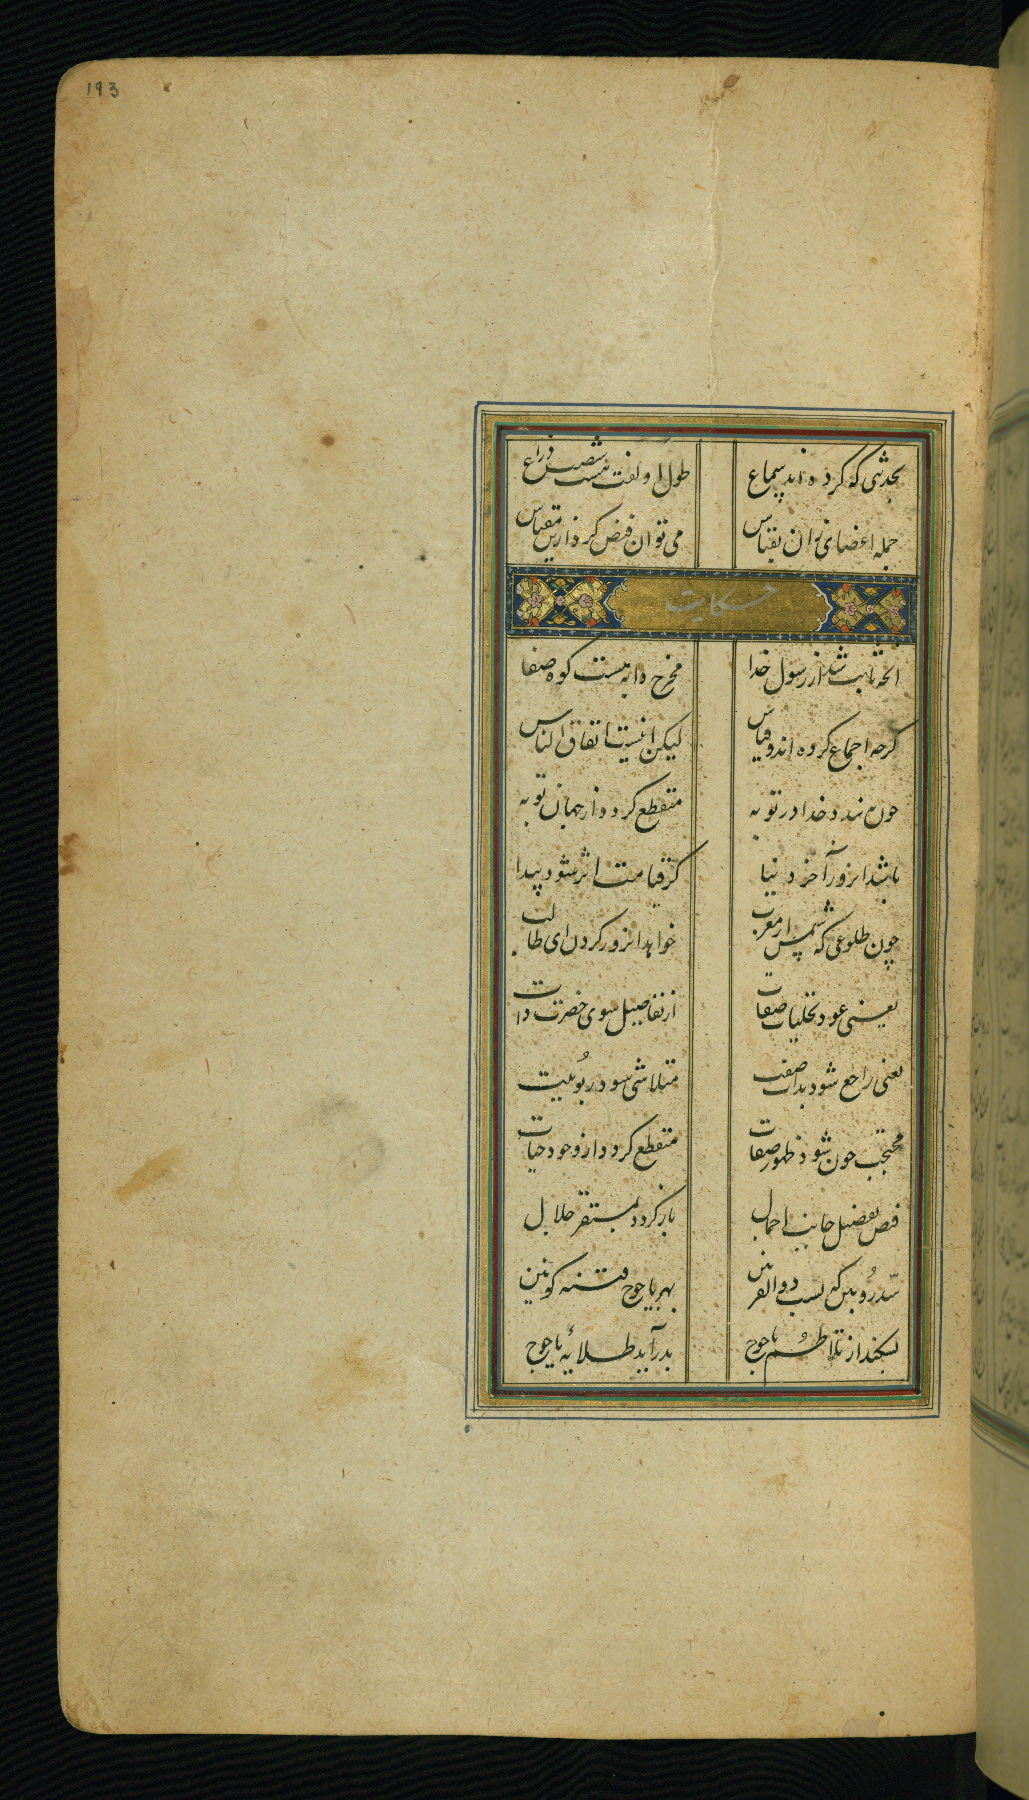 193
بحدیثی که کرده‌اند سماع طول او گفت هست شصت ذراع
جمله اعضای زان بقیاس می‌توان فرض کرد ازین مقیاس
حکایت
انچه ثابت شد از رسول خدا مخرج دابه هست کوه صفا
کرچه اجماع کرده اند و قیاس لیکن اینست اتفاق الناس
چون ببندد خدا در توبه منقطع کردد از جهان توبه
باشد انروز آخر دنیا کز قیامت اثر شود پیدا
چون طلوعی که شمس از مغرب خواهد انروز کردن ای طالب
یعنی عود تجلیات صفات از تفاصیل سوی حضرت ذات
یعنی راجع شود بذات صفت متلاشی شود ربوبیت
محتجب چون شود ظهور صفات منقطع کردد از وجود حیات
فیض تفصیل جانب اجمال باز کردد بمستقر جلال
سد رویین که بست ذو القرنین بهر یاجوج فتنه کونین
بشکند از تلاطم یاجوج بدر آید طلائه یاجوج